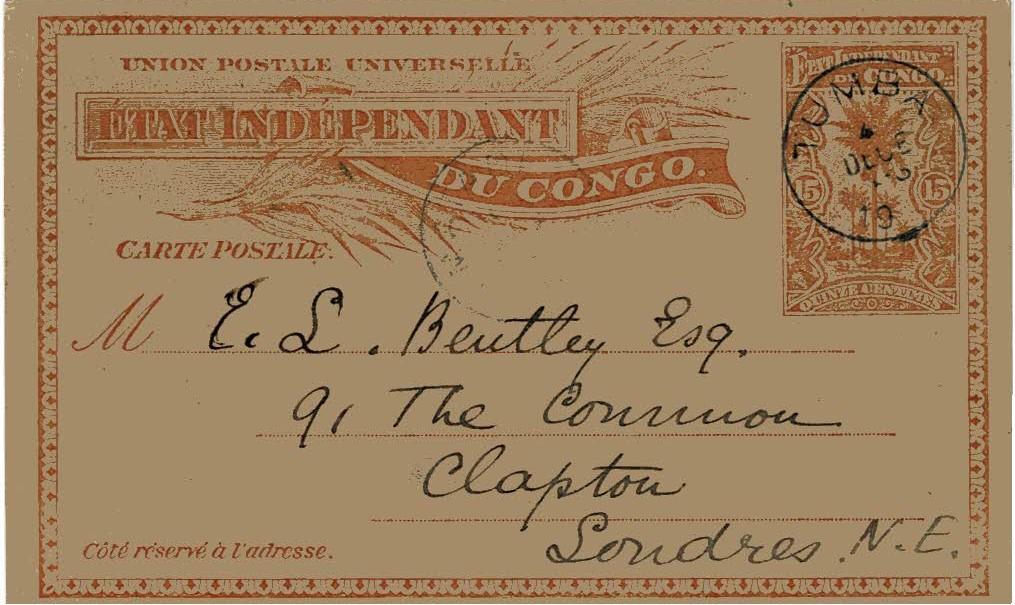 UNION POSTALE UNIVERSELLE
ÉTAT INDÉPENDANT
DU CONGO.
CARTE POSTALE.
ÉTAT INDÉPENDANT
DU CONGO.
15 15
QUINZE CENTIMES
TUMBA
4
DECE
19
M E. L. Bentley Esq.
91 The Common
Clapton
Londres. N.E.
Côté réservé à l'adresse.